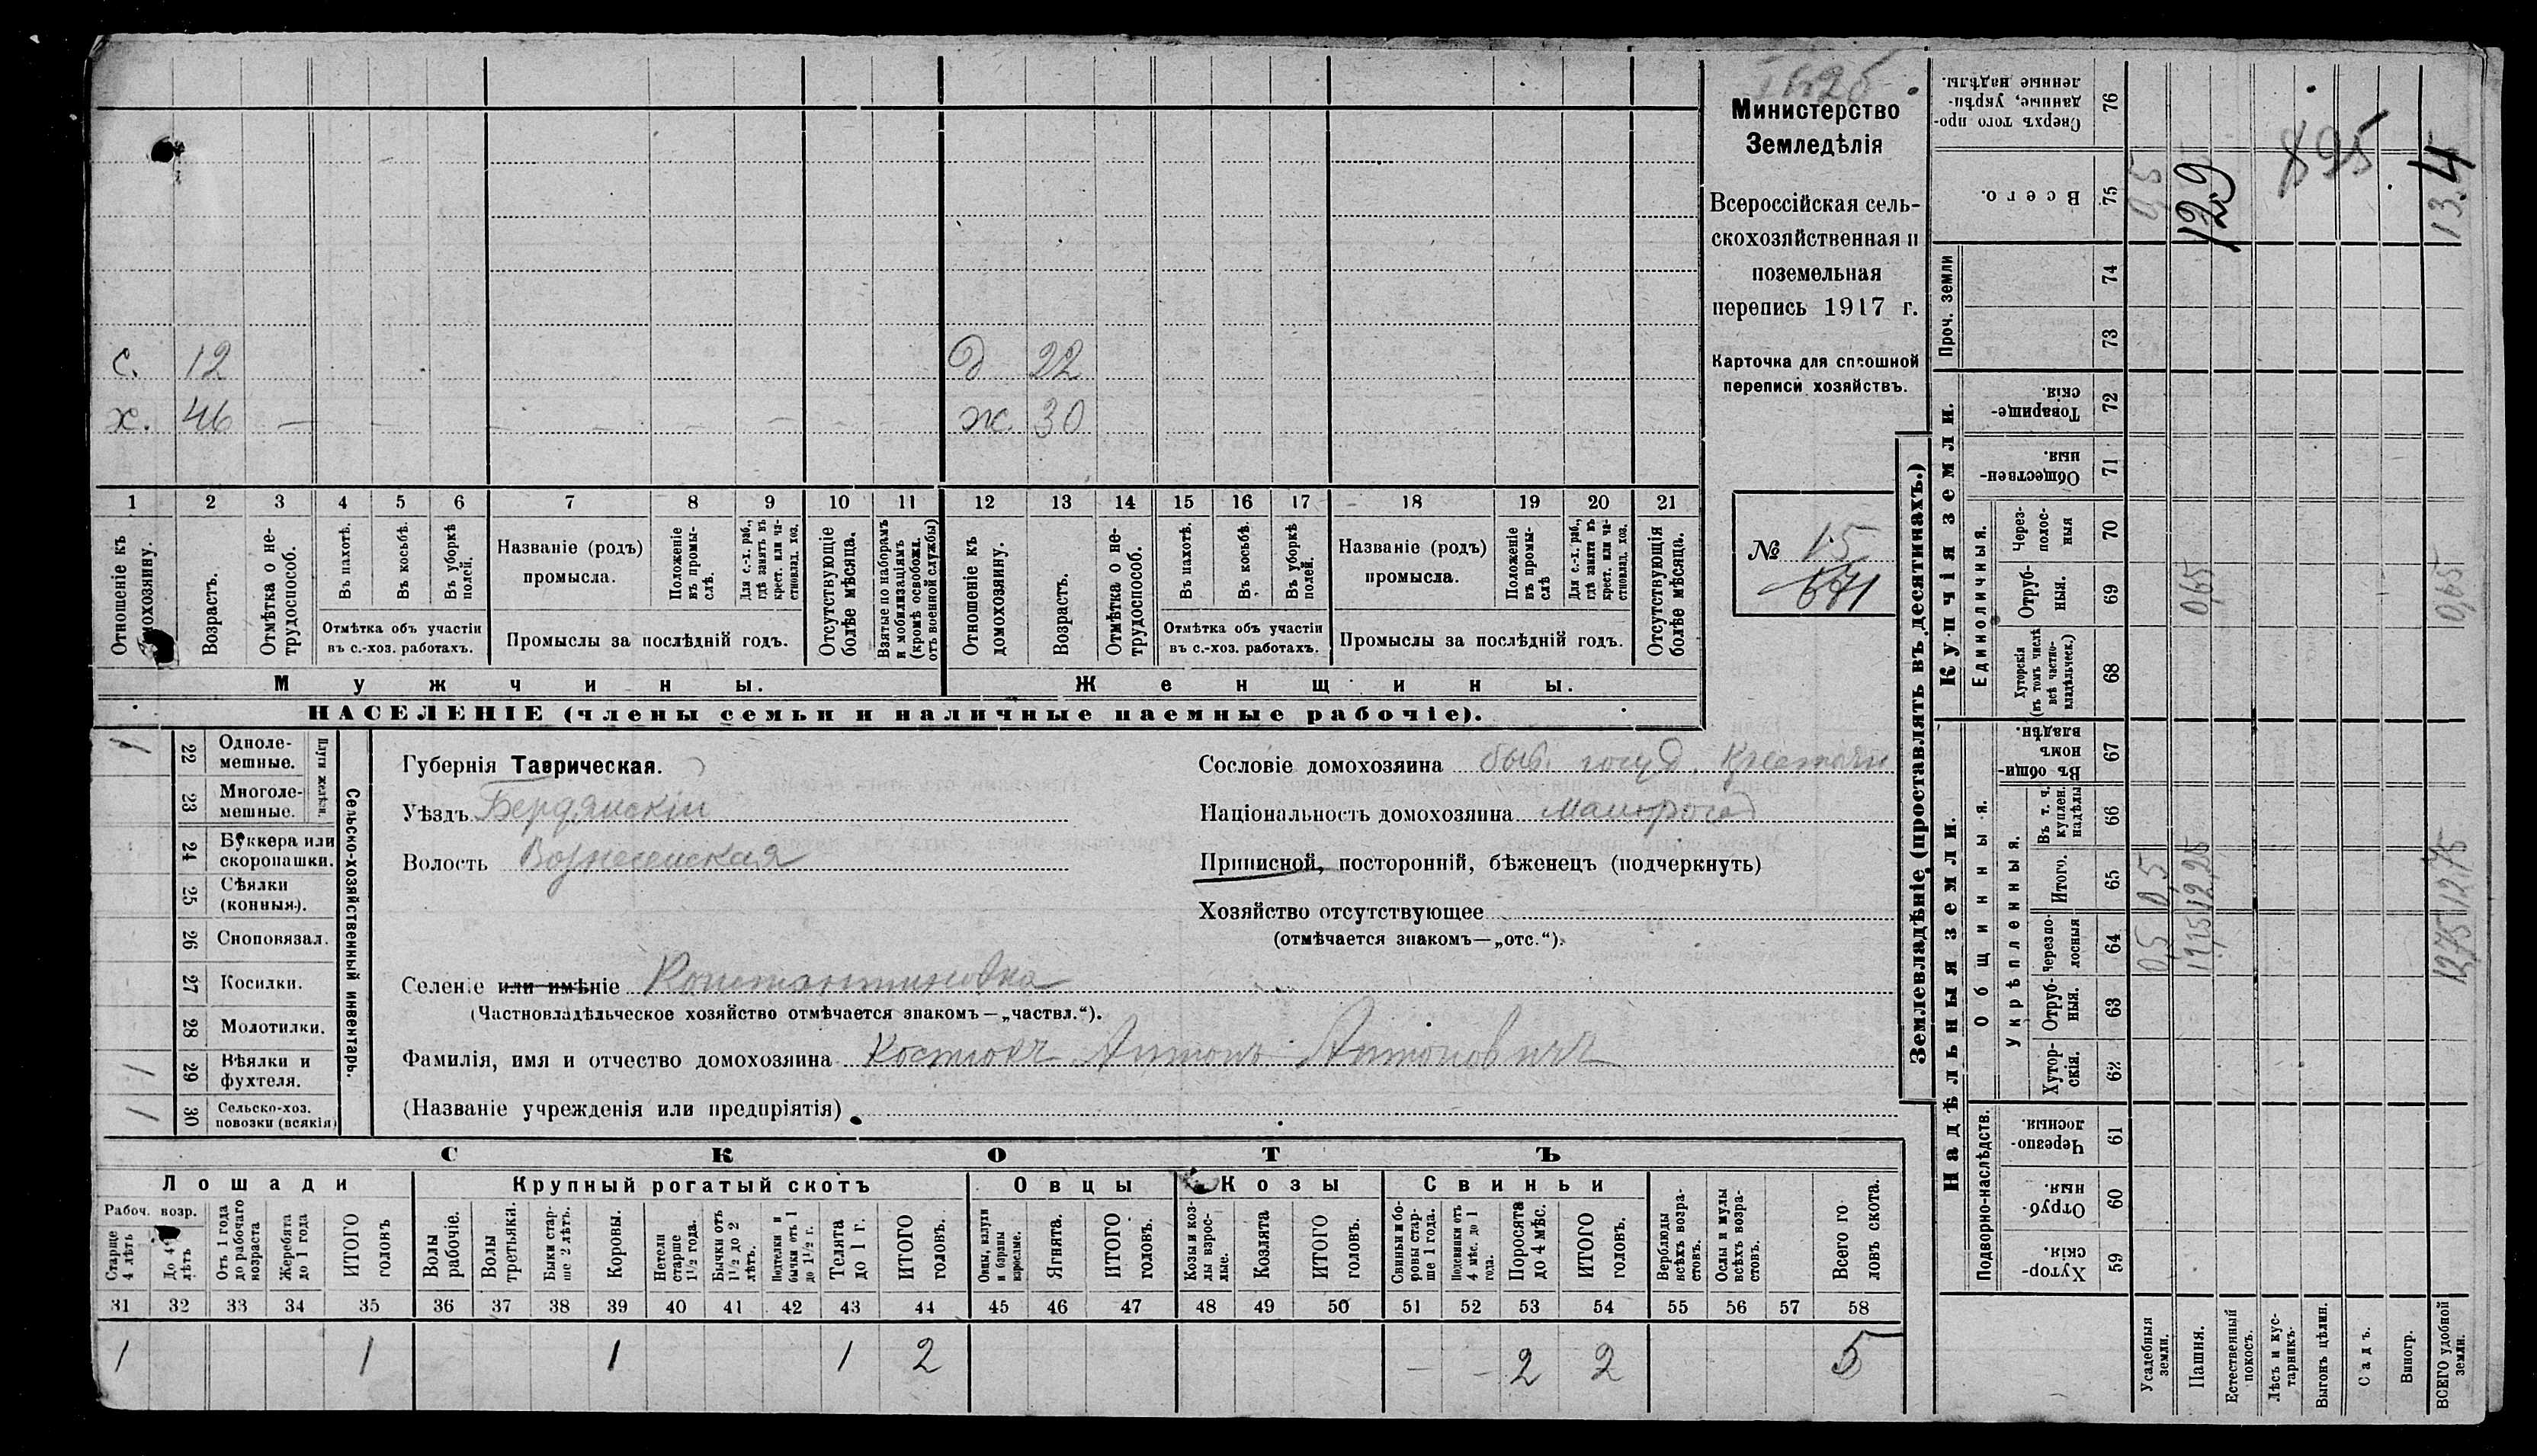 Министерство
Земледѣлія
Всероссійская сель-
скохозяйственная и
поземельная
перепись 1917 г.
Карточка для сплошной
переписи хозяйствъ.
№ 15
671
с. 12 д 22
х. 46 — — — — — — — — — ж 30
1 2 3 4 5 6 7 8 9 10 11 12 13 14 15 16 17 18 19 20 21
Отношеніе къ домохозяину.
Возрастъ.
Отмѣтка о не-трудоспособ.
Въ пахотѣ.
Въ косьбѣ.
Въ уборкѣ полей.
Отмѣтка объ участіи
въ с.-хоз. работахъ.
Названіе (родъ)
промысла.
Положеніе въ промы-слѣ.
Для с.-х. раб., гдѣ занятъ въ крест. или ча-стновлад. хоз.
Промыслы за послѣдній годъ.
Отсутствующіе болѣе мѣсяца.
Взятые по наборамъ и мобилизаціямъ (кромѣ освобожд. отъ военной службы)
Отношеніе къ домохозяину.
Возрастъ.
Отмѣтка о не-трудоспособ.
Въ пахотѣ.
Въ косьбѣ.
Въ уборкѣ полей.
Отмѣтка объ участіи
въ с.-хоз. работахъ.
Названіе (родъ)
промысла.
Положеніе въ промы-слѣ
Для с.-х. раб., гдѣ занята въ крест. или ча-стновлад. хоз.
Промыслы за послѣдній годъ.
Отсутствующія болѣе мѣсяца.
Мужчины. Женщины.
НАСЕЛЕНІЕ (члены семьи и наличные наемные рабочіе).
Сельско-хозяйственный инвентарь.
Плуги желѣзн.
1 22 Одноле-мешные.
23 Многоле-мешные.
24 Буккера или скоропашки.
25 Сѣялки (конныя).
26 Сноповязал.
27 Косилки.
28 Молотилки.
1 29 Вѣялки и фухтеля.
1 30 Сельско-хоз. повозки (всякія)
Губернія Таврическая.
Уѣздъ Бердянскій
Волость Вознесенская
Сословіе домохозяина быв. госуд. Крестьян
Національность домохозяина малоросс
Приписной, посторонній, бѣженецъ (подчеркнуть)
Хозяйство отсутствующее
(отмѣчается знакомъ—„отс.“).
Селеніе или имѣніе Константиновка
(Частновладѣльческое хозяйство отмѣчается знакомъ—„частвл.“).
Фамилія, имя и отчество домохозяина Костюкъ Антонъ Антоновичъ
(Названіе учрежденія или предпріятія)
СКОТЪ
Лошади Крупный рогатый скотъ Овцы Козы Свиньи
Рабоч. возр.
Старше 4 лѣтъ
До 4 лѣтъ
Отъ 1 года до рабочаго возраста
Жеребята до 1 года
ИТОГО головъ
Волы рабочіе.
Волы третьяки.
Быки стар-ше 2 лѣтъ.
Коровы.
Нетели старше 1 1/2 года.
Бычки отъ 1 1/2 до 2 лѣтъ.
Подтелки и бычки отъ 1 до 1 1/2 г.
Телята до 1 г.
ИТОГО головъ.
Овцы, валухи и бараны взрослые.
Ягнята.
ИТОГО головъ.
Козы и коз-лы взрос-лые.
Козлята
ИТОГО головъ.
Свиньи и бо-ровы стар-ше 1 года.
Подсвинки отъ 4 мѣс. до 1 года.
Поросята до 4 мѣс.
ИТОГО головъ.
Верблюды всѣхъ возра-стовъ.
Ослы и мулы всѣхъ возра-стовъ.
Всего го-ловъ скота.
31 32 33 34 35 36 37 38 39 40 41 42 43 44 45 46 47 48 49 50 51 52 53 54 55 56 57 58
1 1 1 1 2 — — 2 2 5
Землевладѣніе (проставлять въ десятинахъ.)
Надѣльныя земли. Купчія земли. Проч. земли
Подворно-наслѣдств.
Общинныя.
Укрѣпленныя.
Единоличныя.
Хутор-скія. 59
Отруб-ныя. 60
Черезпо-лосныя. 61
Хутор-скія. 62
Отруб-ныя. 63
Черезпо-лосныя 64
Итого. 65
Въ т. ч. куплен. надѣлы 66
Въ общин-номъ владѣн. 67
Хуторскія (въ томъ числѣ всѣ частно-владѣльческ.) 68
Отруб-ныя. 69
Через-полос-ныя 70
Обществен-ныя. 71
Товарище-скія. 72
73
74
Всего. 75
Сверхъ того про-данные, укрѣп-ленные надѣлы. 76
Усадебныя земли. 0,5 0,5 0,5
Пашня. 12,25 0,65 12,9
Естественный покосъ.
Лѣсъ и кус-тарникъ.
Выгонъ цѣлин.
Садъ.
Виногр.
ВСЕГО удобной земли. 12,75 12,75 0,65 13,4